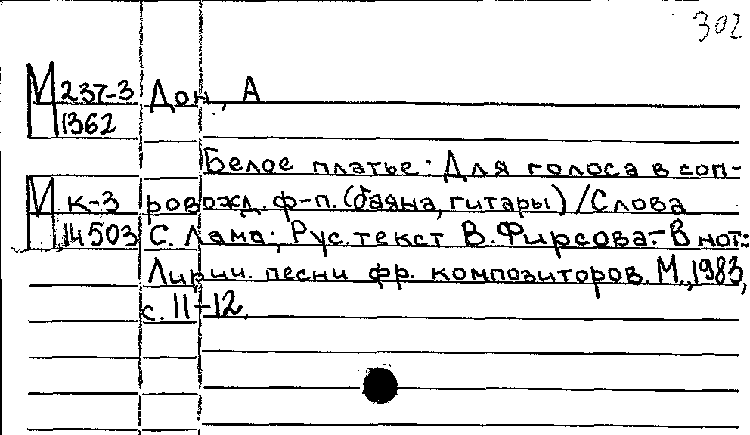 302
М 237-3 Дон, А
1362
Белое платье: Для голоса в соп-
М к-3 ровожд. ф-п. (баяна, гитары) / Слова
14503 С. Лама; Рус. текст В. Фирсова.- В нот.:
Лирич. песни фр. композиторов. М., 1983,
с. 11-12.